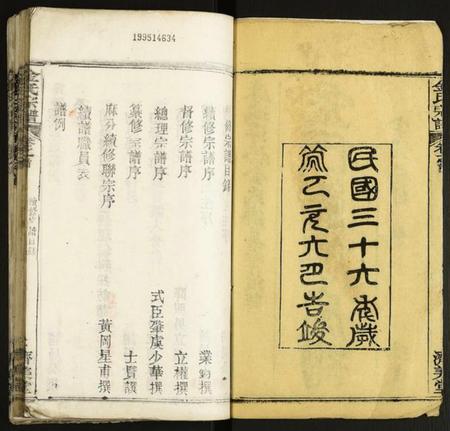 民國三十六年歲
次丁亥六月告竣
金氏宗譜
199514634
續修宗譜目錄
續修宗譜序 業鈞撰
督修宗譜序 立權撰
總理宗譜序 式臣肇虞少華撰
纂修宗譜序 士賢撰
麻分續修聯宗序 黃岡星甫撰
續譜職員表
譜例
金氏宗譜